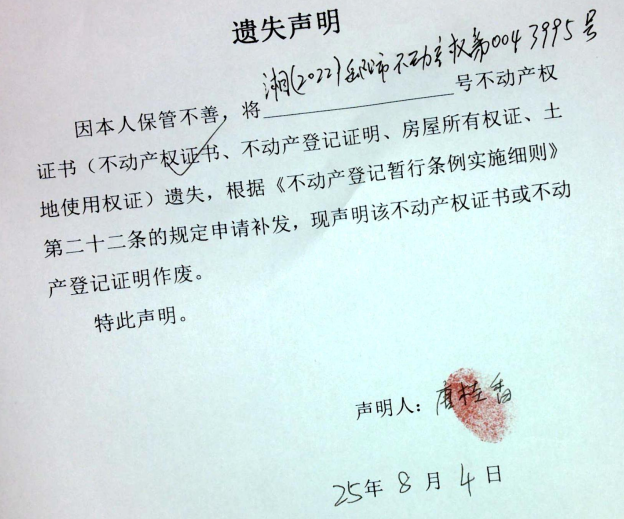 遗失声明
湘(2022)岳阳市不动产权第0043995号
因本人保管不善，将号不动产权
证书（不动产权证书、不动产登记证明、房屋所有权证、土
地使用权证）遗失，根据《不动产登记暂行条例实施细则》
第二十二条的规定申请补发，现声明该不动产权证书或不动
产登记证明作废。
特此声明。
声明人：唐桂香
25年8月4日